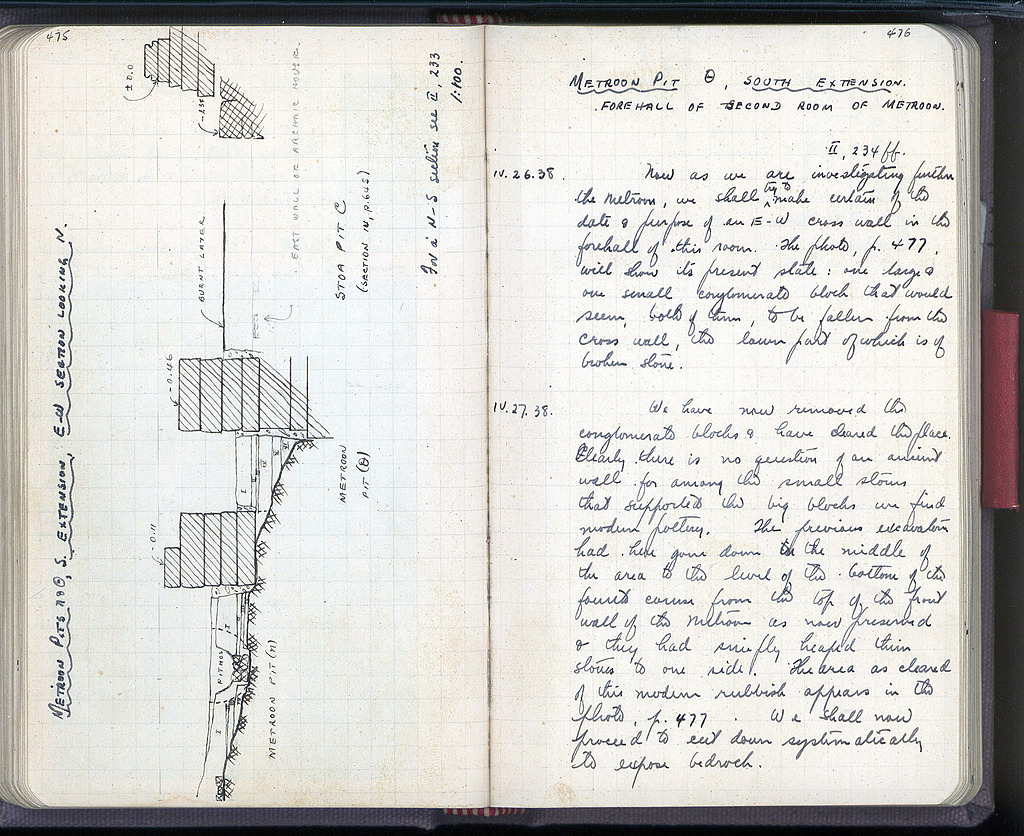 475
METROON PITS η & Θ, S. EXTENSION, E-W SECTION LOOKING N.
± 0.0
EAST WALL OF ARCHAIC HOUSE.
BURNT LAYER
STOA PIT C
(SECTION IV, p. 645)
For a N-S section see II, 233
1:100.
-0.46
METROON
PIT (Θ)
-0.11
PITHOS
I
II
METROON PIT (η)
476
METROON PIT Θ, SOUTH EXTENSION.
FOREHALL OF SECOND ROOM OF METROON.
II, 234 ff.
IV.26.38. Now as we are investigating further
the Metroon, we shall try to make certain of the
date & purpose of an E-W cross wall in the
forehall of this room. The photo, p. 477,
will show its present state: one large &
one small conglomerate block that would
seem, both of them, to be fallen from the
cross wall, the lower part of which is of
broken stone.
IV.27.38. We have now removed the
conglomerate blocks & have cleared the place.
Clearly there is no question of an ancient
wall for among the small stones
that supported the big blocks we find
modern pottery. The previous excavators
had here gone down in the middle of
the area to the level of the bottom of the
fourth course from the top of the front
wall of the Metroon as now preserved
& they had simply heaped their
stones to one side. The area as cleared
of this modern rubbish appears in the
photo, p. 477. We shall now
proceed to cut down systematically
to expose bedrock.